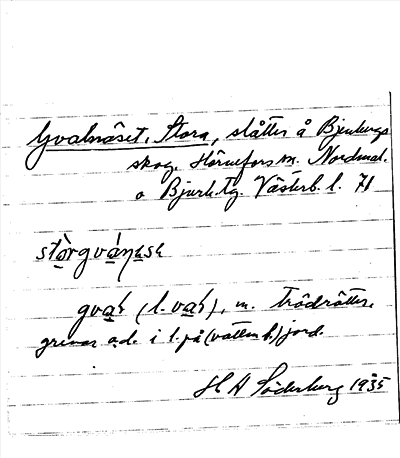 Gvalnäset, Stora, slåtter å Bjenbergs
skog, Hörnefors m. Nordmal.
o Bjurh. tg. Västerb. l. 71
stòrgvánesε
gvaḷ (l. vaḷ), m. trädrötter,
grenar o.d. i l. på (vatten l.) jord.
H A Söderberg 1935